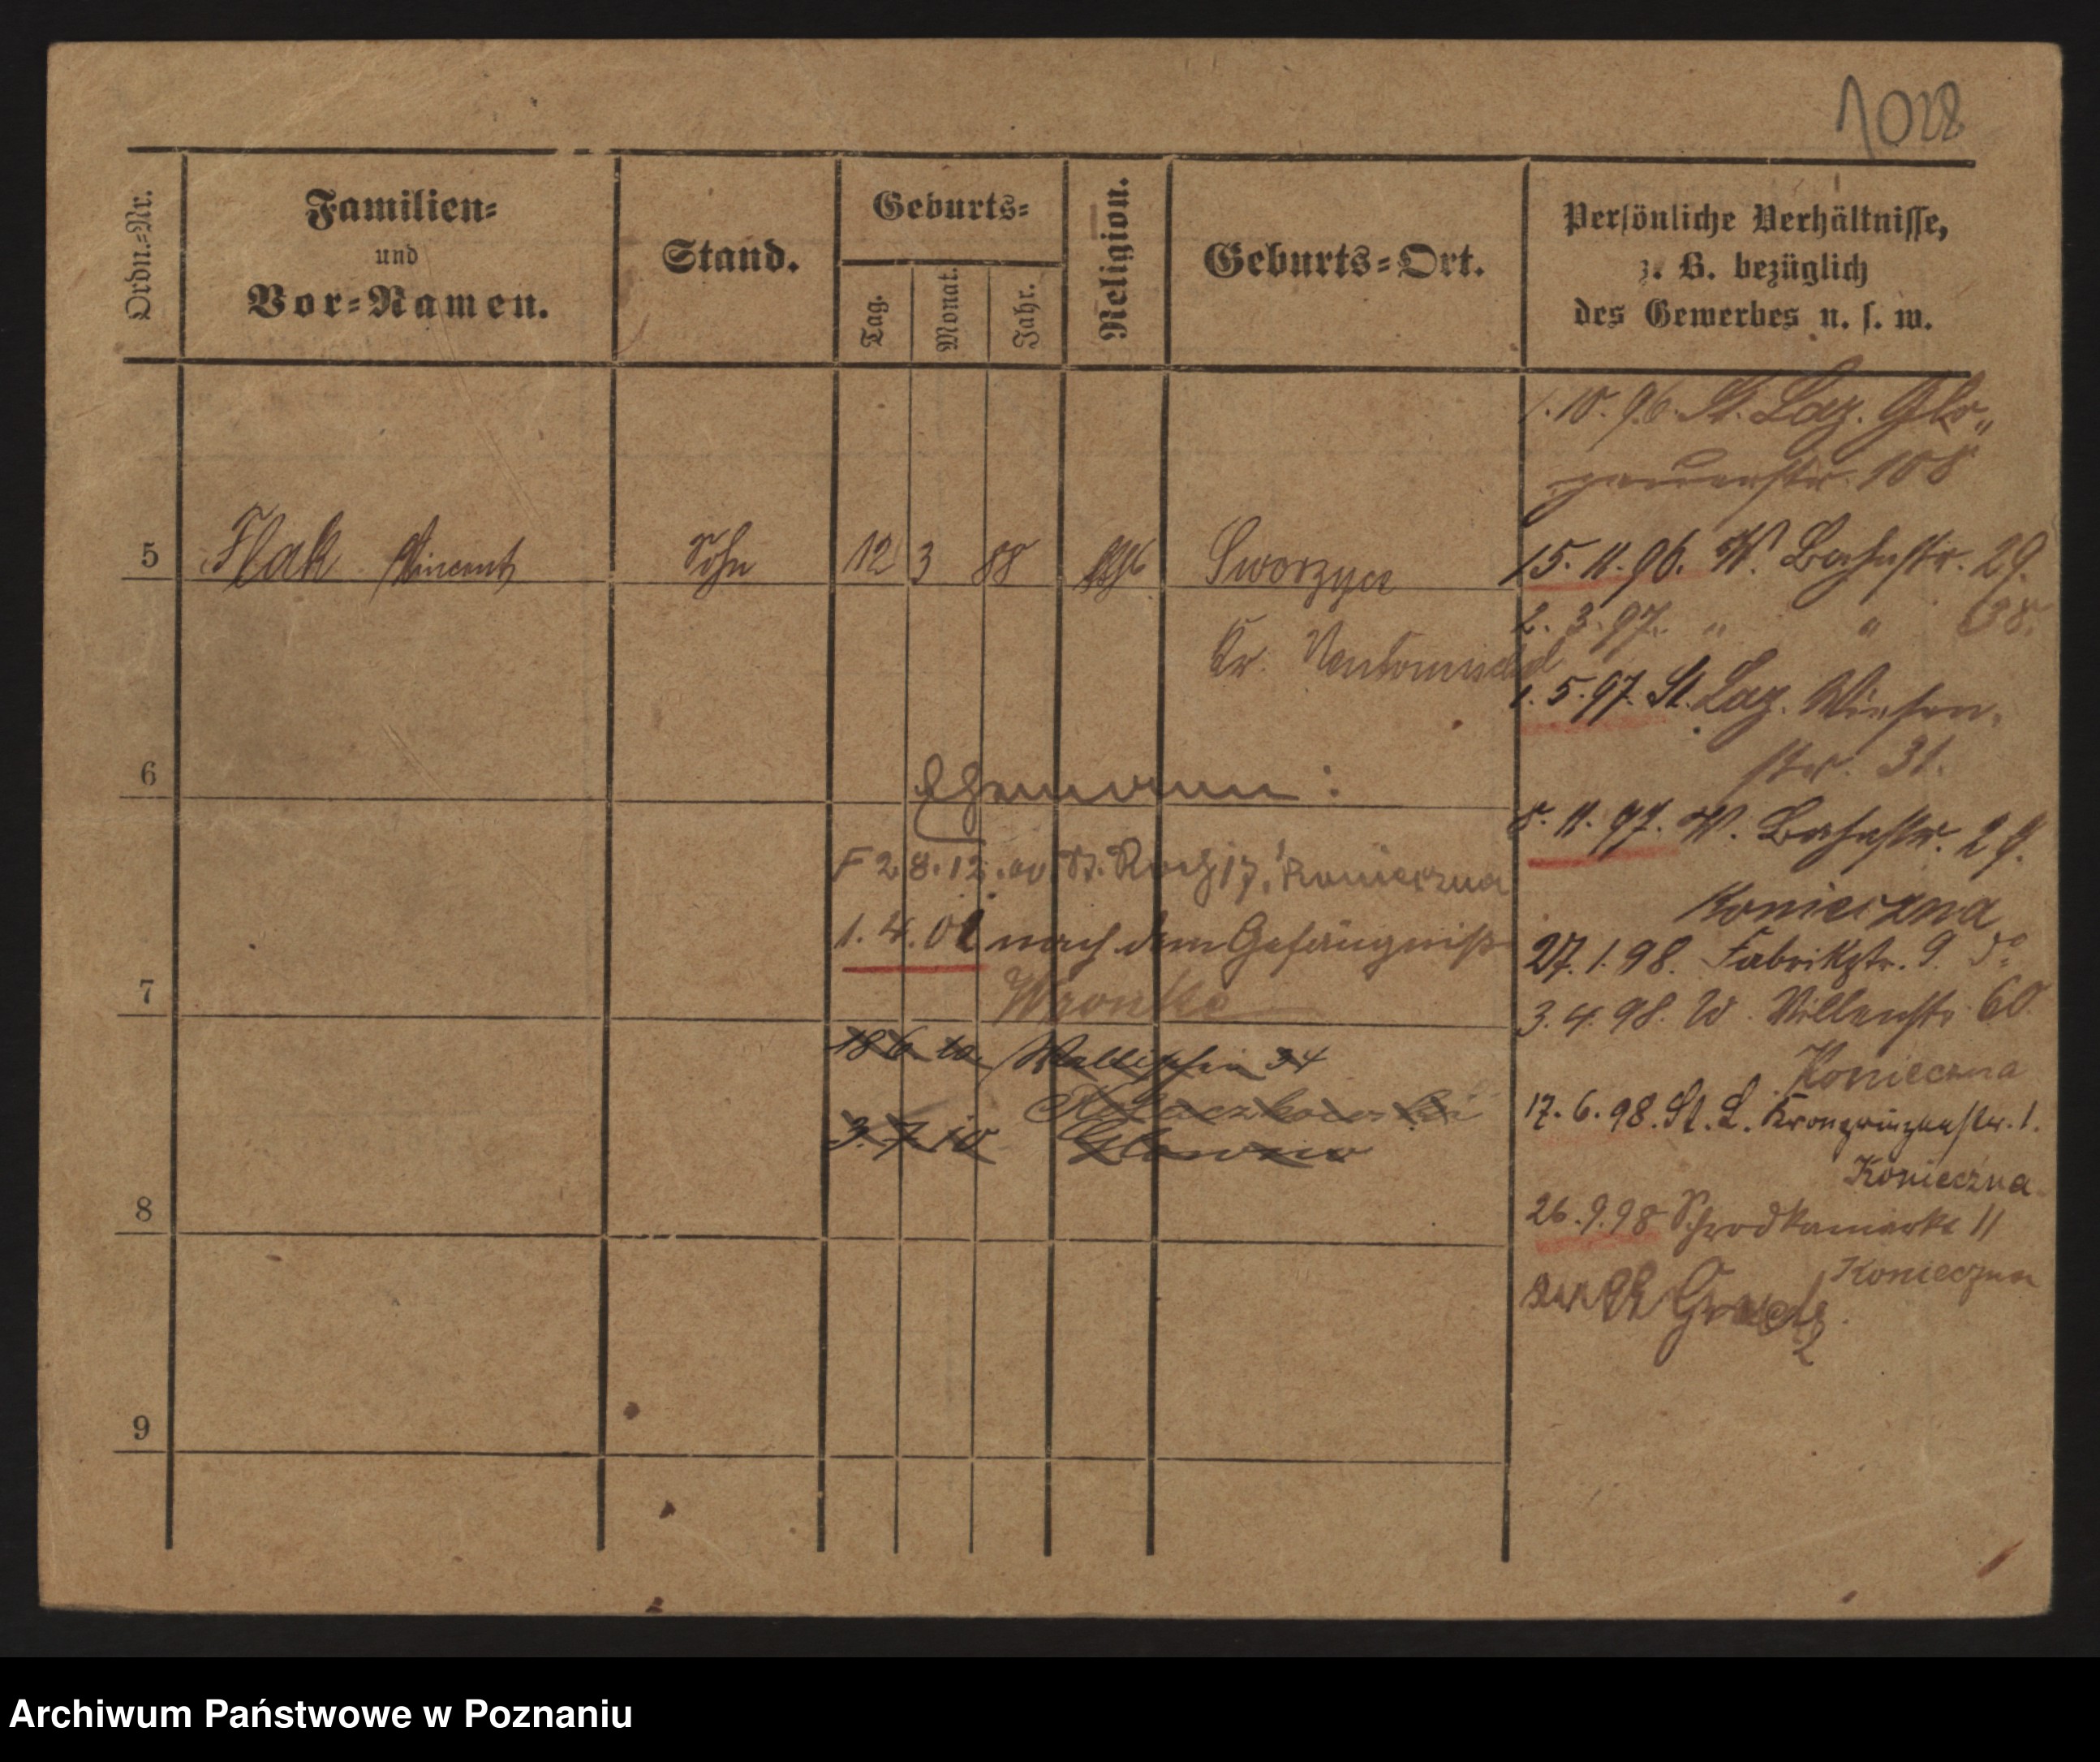 1028
Ordn.=Nr.
Familien=
und
Vor=Namen.
Stand.
Geburts=
Tag.
Monat.
Jahr.
Religion.
Geburts=Ort.
Persönliche Verhältnisse,
z. B. bezüglich
des Gewerbes u. s. w.
1.10.96. St. Laz. Glo„
gauerstr. 108
5 Flak Vincent Sohn 12 3 88 Sworzyce
Kr. Neutomischel
15.11.96. W. Bahnstr. 29.
2.3.97. „ „ 38.
1.5.97. St. Laz. Wiesen,
str. 31.
6
Ehemann:
8.11.97. W. Bahnstr. 29.
Konieczna
2.8.12. Konieczna
1.4.01 nach dem Gefängniß
Wronke
27.1.98. Fabrikstr. 9. do
7
3.4.98. W. Villenstr. 60
Konieczna
18.6.10. Wallischei 34
17.6.98. St. L. Kronprinzenstr. 1.
Konieczna
3.7.10 Glowno
8
26.9.98 Schrodkamarkt 11
Konieczna
9
Archiwum Państwowe w Poznaniu